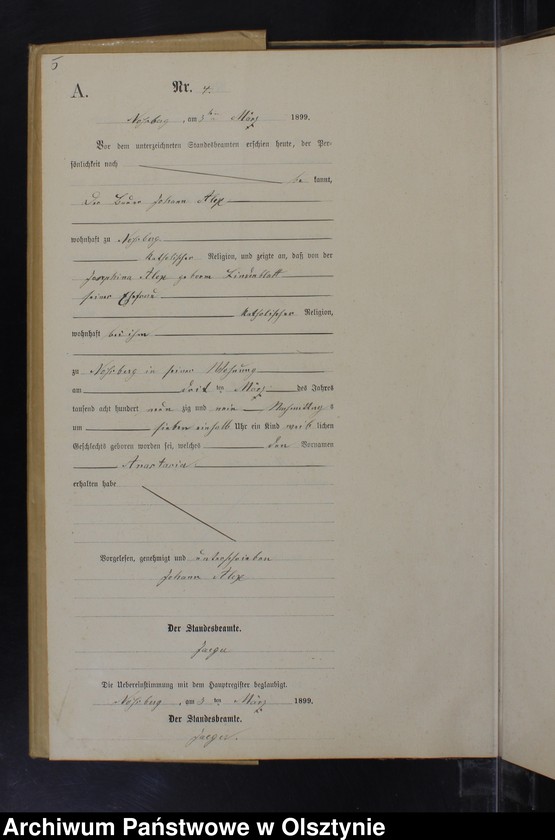 5
A.
Nr. 4.
Noßberg, am 3ten März 1899.
Vor dem unterzeichneten Standesbeamten erschien heute, der Per-
sönlichkeit nach
be kannt,
der Bauer Johann Alex
wohnhaft zu Noßberg
katholischer Religion, und zeigte an, daß von der
Josephina Alex geborene Lindenblatt
seiner Ehefrau
katholischer Religion,
wohnhaft bei ihm
zu Noßberg in seiner Wohnung
am ten März des Jahres
tausend acht hundert neun zig und neun Nachmittag s
um sieben einhalb Uhr ein Kind weib lichen
Geschlechts geboren worden sei, welches den Vornamen
Anastasia
erhalten habe
Vorgelesen, genehmigt und unterschrieben
Johann Alex
Der Standesbeamte.
Jaeger
Die Uebereinstimmung mit dem Hauptregister beglaubigt.
Noßberg, am 3 ten März 1899.
Der Standesbeamte.
Jaeger.
Archiwum Państwowe w Olsztynie